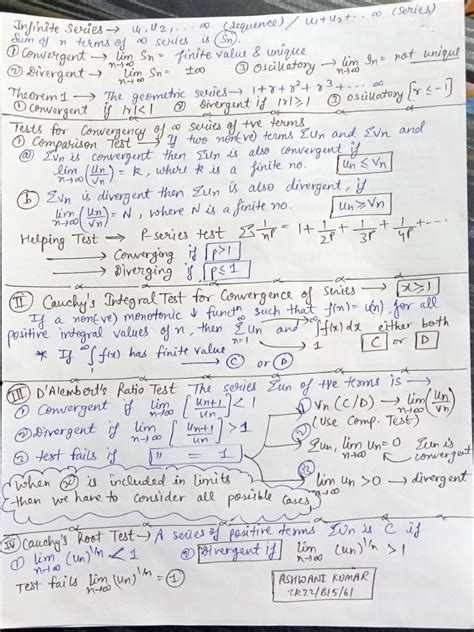 Infinite Series → u1, u2, ..... ∞ (sequence) / u1 + u2 + ... ∞ (series)
Sum of n terms of ∞ series is (Sn).
① Convergent → lim n→∞ Sn = finite value & unique
② Divergent → lim n→∞ Sn = ±∞ ③ Oscillatory → lim n→∞ Sn = not unique
Theorem 1 → The geometric series → 1+r+r²+r³+....∞
① Convergent if |r|<1 ② Divergent if |r|≥1 ③ oscillatory [r≤-1]
Tests for Convergency of ∞ series of +ve terms
① Comparison Test → If two non(-ve) terms Σun and Σvn and
ⓐ Σvn is convergent then Σun is also convergent if
lim n→∞ (un/vn) = k, where k is a finite no. un ≤ vn
ⓑ Σvn is divergent then Σun is also divergent, if
lim n→∞ (un/vn) = N, where N is a finite no. un ≥ vn
Helping Test → P-series test Σ 1/n^p = 1 + 1/2^p + 1/3^p + 1/4^p + ...
→ Converging if p>1
→ Diverging if p≤1
II Cauchy's Integral Test for Convergence of Series → x≥1
If a non(-ve) monotonic ↓ functn such that f(n) = u(n), for all
positive integral values of n, then Σun and ∫f(x)dx either both
* If ∫f(x) has finite value → C or D C or D
III D'Alembert's Ratio Test The series Σun of +ve terms is →
① Convergent if lim n→∞ [un+1/un] < 1 ① vn (C/D) → lim n→∞ (un/vn)
(Use Comp. Test)
② Divergent if lim n→∞ [un+1/un] > 1
② Σun, lim n→∞ un = 0 Σun is convergent
③ test fails if [ " = 1
③ lim n→∞ un > 0 → divergent
When x is included in limits
then we have to consider all posible cases
IV Cauchy's Root Test → A series of positive terms Σun is C if
① lim n→∞ (un)^1/n < 1 ② Divergent if lim n→∞ (un)^1/n > 1
Test fails lim n→∞ (un)^1/n = 1
ASHWANI KUMAR
2K22/B15/61